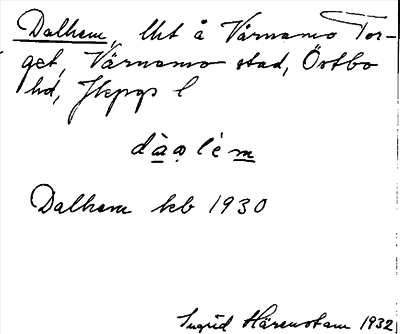 Dalhem, lht å Värnamo Tor-
get, Värnamo stad, Östbo
hd, Jkpgs l
dàαlèm
Dalhem kb 1930
Ingrid Härenstam 1932